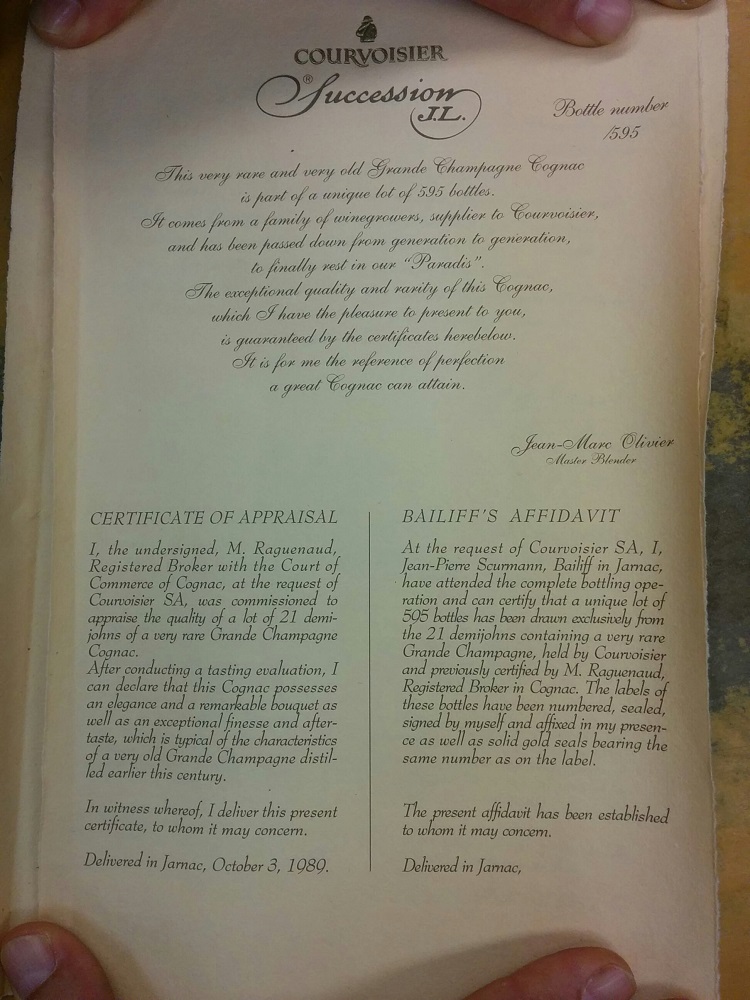 COURVOISIER
® Succession
J.L.
Bottle number
/595
This very rare and very old Grande Champagne Cognac
is part of a unique lot of 595 bottles.
It comes from a family of winegrowers, supplier to Courvoisier,
and has been passed down from generation to generation,
to finally rest in our “Paradis”.
The exceptional quality and rarity of this Cognac,
which I have the pleasure to present to you,
is guaranteed by the certificates herebelow.
It is for me the reference of perfection
a great Cognac can attain.
Jean-Marc Olivier
Master Blender
CERTIFICATE OF APPRAISAL
I, the undersigned, M. Raguenaud,
Registered Broker with the Court of
Commerce of Cognac, at the request of
Courvoisier SA, was commissioned to
appraise the quality of a lot of 21 demi-
johns of a very rare Grande Champagne
Cognac.
After conducting a tasting evaluation, I
can declare that this Cognac possesses
an elegance and a remarkable bouquet as
well as an exceptional finesse and after-
taste, which is typical of the characteristics
of a very old Grande Champagne distil-
led earlier this century.
In witness whereof, I deliver this present
certificate, to whom it may concern.
Delivered in Jarnac, October 3, 1989.
BAILIFF'S AFFIDAVIT
At the request of Courvoisier SA, I,
Jean-Pierre Scurmann, Bailiff in Jarnac,
have attended the complete bottling ope-
ration and can certify that a unique lot of
595 bottles has been drawn exclusively from
the 21 demijohns containing a very rare
Grande Champagne, held by Courvoisier
and previously certified by M. Raguenaud,
Registered Broker in Cognac. The labels of
these bottles have been numbered, sealed,
signed by myself and affixed in my presen-
ce as well as solid gold seals bearing the
same number as on the label.
The present affidavit has been established
to whom it may concern.
Delivered in Jarnac,